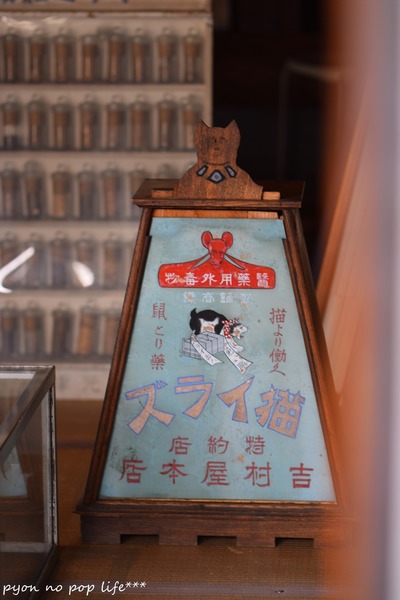 醫藥用外毒物
猫より働く
鼠とり藥
猫イラズ
特約店
吉村屋本店
pyon no pop life***